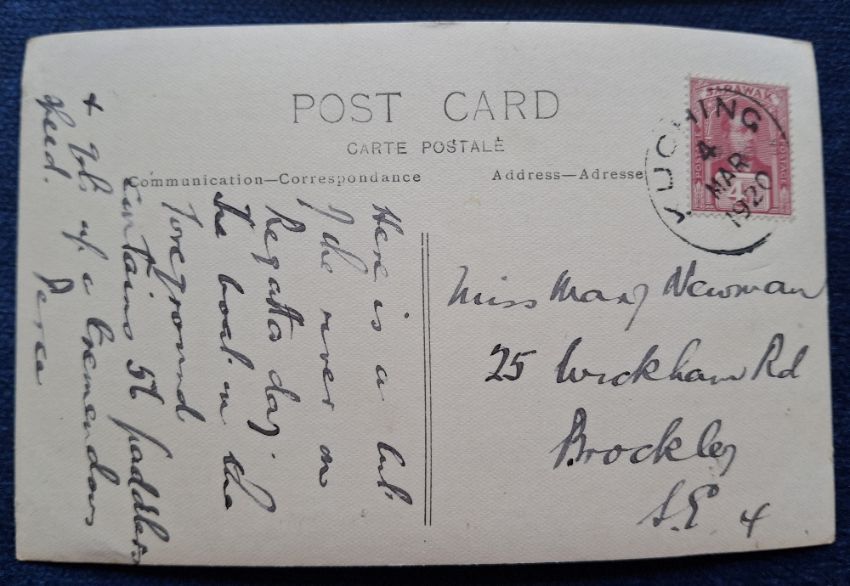 POST CARD
CARTE POSTALE
Communication—Correspondance
Address—Adresse
SARAWAK
POSTAGE
POSTAGE
4
KUCHING
4
MAR
1920
Here is a bit
of the river on
Regatta day.
The boat in the
foreground
contains 56 paddlers
+ up a tremendous
speed.
Miss Mary Newman
25 Wickham Rd
Brockley
S.E 4